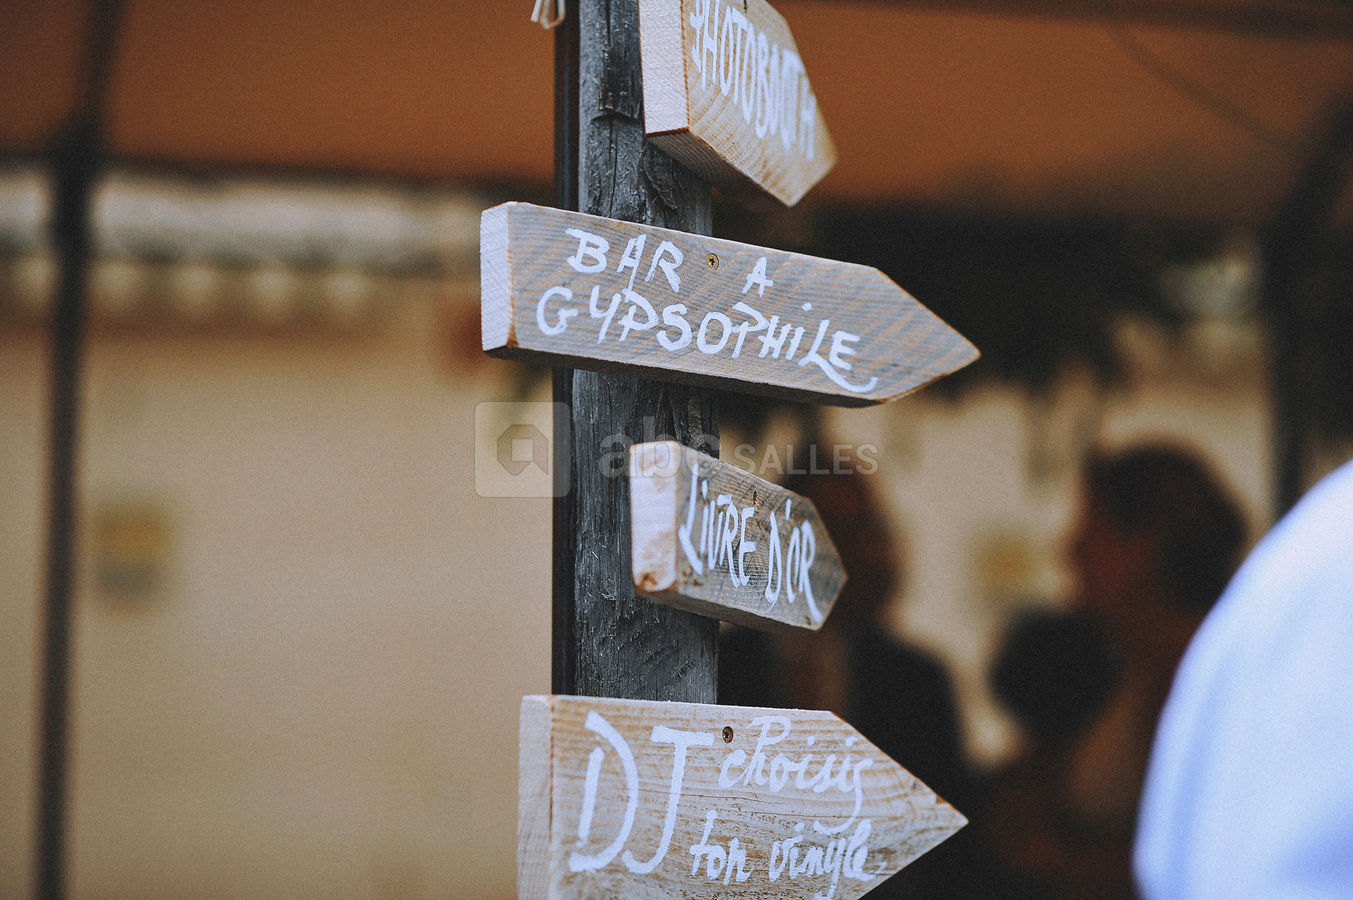 PHOTOBOOTH
BAR A
GYPSOPHILE
abc SALLES
LIVRE D'OR
DJ choisis
ton vingle